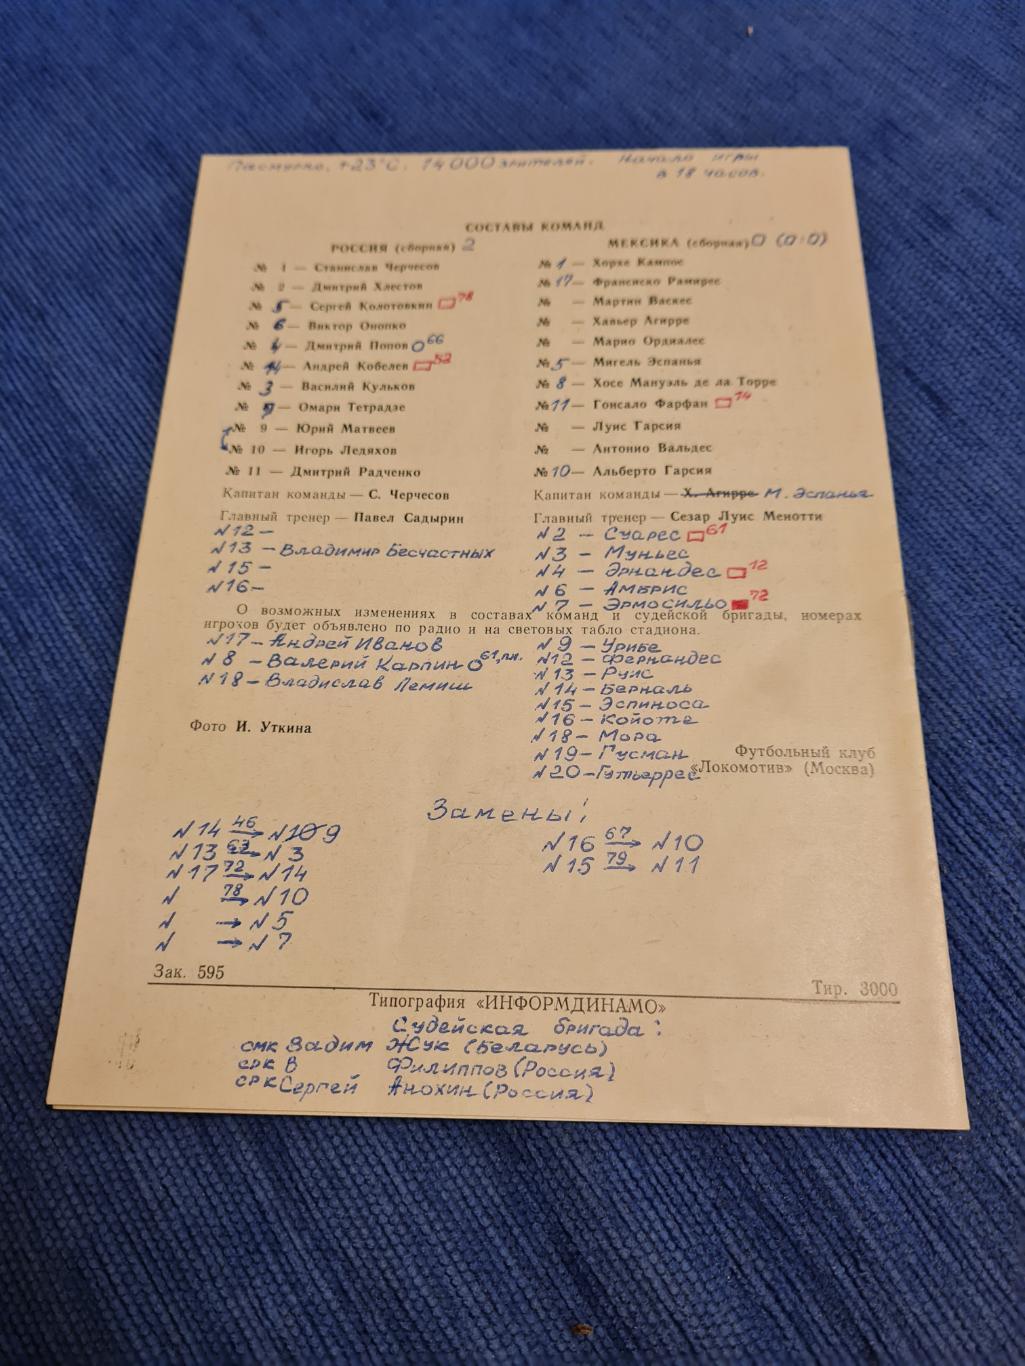 Пасмурно, +23°C. 14000 зрителей. Начало игры
в 18 часов.
СОСТАВЫ КОМАНД
РОССИЯ (сборная) 2
№ 1 — Станислав Черчесов
№ 2 — Дмитрий Хлестов
№ 5 — Сергей Колотовкин 78
№ 6 — Виктор Онопко
№ 4 — Дмитрий Попов 66
№ 14 — Андрей Кобелев 52
№ 3 — Василий Кульков
№ 7 — Омари Тетрадзе
№ 9 — Юрий Матвеев
№ 10 — Игорь Ледяхов
№ 11 — Дмитрий Радченко
Капитан команды — С. Черчесов
Главный тренер — Павел Садырин
N12 —
N13 — Владимир Бесчастных
N15 —
N16 —
МЕКСИКА (сборная) 0 (0:0)
№ 1 — Хорхе Кампос
№ 17 — Франсиско Рамирес
№ — Мартин Васкес
№ — Хавьер Агирре
№ — Марио Ордиалес
№ 5 — Мигель Эспанья
№ 8 — Хосе Мануэль де ла Торре
№ 11 — Гонсало Фарфан 14
№ — Луис Гарсия
№ — Антонио Вальдес
№ 10 — Альберто Гарсия
Капитан команды — Х. Агирре М. Эспанья
Главный тренер — Сезар Луис Менотти
N2 — Суарес 61
N3 — Муньес
N4 — Эрнандес 12
N6 — Амбрис
N7 — Эрмосильо 72
О возможных изменениях в составах команд и судейской бригады, номерах
игроков будет объявлено по радио и на световых табло стадиона.
N17 — Андрей Иванов
N8 — Валерий Карпин 61, пл.
N18 — Владислав Лемиш
N9 — Урибе
N12 — Фернандес
N13 — Руис
N14 — Берналь
N15 — Эспиноса
N16 — Койоте
N18 — Мора
N19 — Гусман
N20 — Гутьеррес
Фото И. Уткина
Футбольный клуб
«Локомотив» (Москва)
Замены:
N14 46 → N10 9
N13 63 → N3
N17 72 → N14
N 78 → N10
N → N5
N → N7
N16 67 → N10
N15 79 → N11
Зак. 595
Тир. 3000
Типография «ИНФОРМДИНАМО»
Судейская бригада:
смк Вадим Жук (Беларусь)
срк В Филиппов (Россия)
срк Сергей Анохин (Россия)